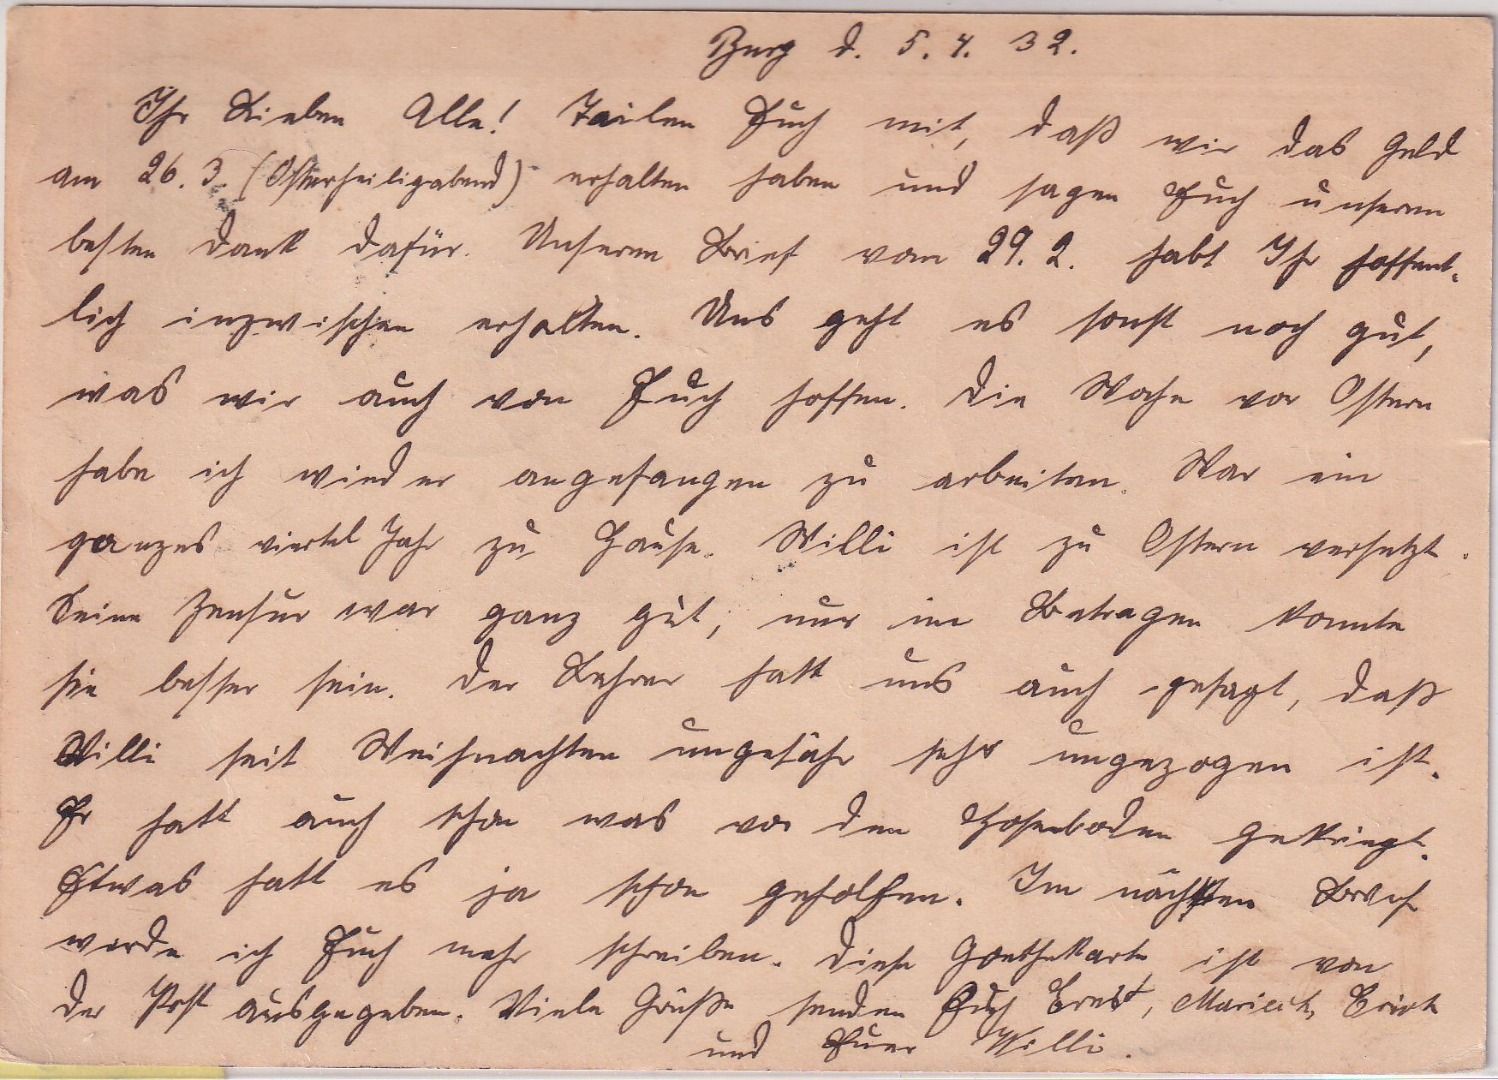 Burg d. 5. 4. 32.
Ihr Lieben Alle! Teilen Euch mit, daß wir das Geld
am 26. 3. (Osterheiligabend) erhalten haben und sagen Euch unseren
besten Dank dafür. Unseren Brief vom 29. 2. habt Ihr hoffent-
lich inzwischen erhalten. Uns geht es sonst noch gut,
was wir auch von Euch hoffen. Die Woche vor Ostern
habe ich wieder angefangen zu arbeiten. War ein
ganzes viertel Jahr zu Hause. Willi ist zu Ostern versetzt.
Seine Zensur war ganz gut, nur im Betragen konnte
sie besser sein. Der Lehrer hatt uns auch gesagt, daß
Willi seit Weihnachten ungefähr sehr ungezogen ist.
Er hatt auch schon was vor den Hosenboden gekriegt.
Etwas hatt es ja schon geholfen. Im nächsten Brief
werde ich Euch mehr schreiben. Diese Goethekarte ist von
der Post ausgegeben. Viele Grüße senden Euch Ernst, Erich
und Euer Willi.